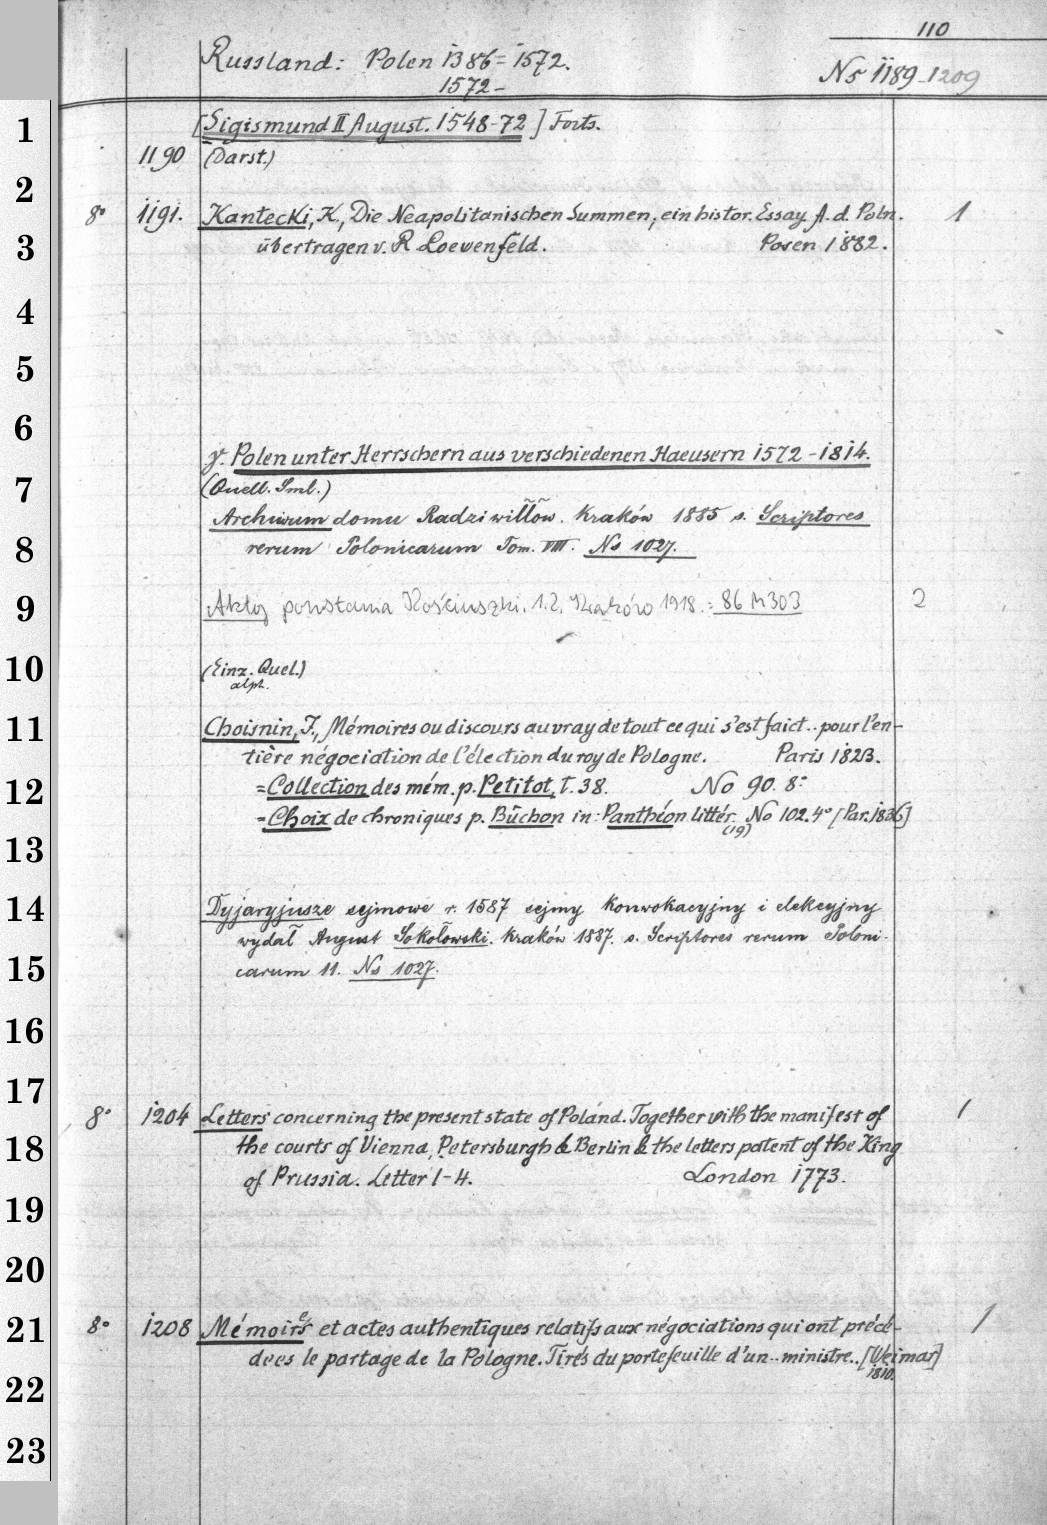 110
Russland: Polen 1386=1572.
1572-
No 1189-1209
1
[Sigismund II August. 1548-72] Forts.
1190 (Darst.)
2
8° 1191. Kantecki, K., Die Neapolitanischen Summen, ein histor. Essay A. d. Poln. 1
3 übertragen v. R Loewenfeld. Posen 1882.
4
5
6
γ. Polen unter Herrschern aus verschiedenen Haeusern 1572-1814.
7 (Quell. Sml.)
Archiwum domu Radziwiłłow. Kraków 1885 s. Scriptores
8 rerum Polonicarum Tom. VIII. No 1027.
9 Akty powstania Kościuszki. 1.2. Kraków 1918. = 86 M 303 2
10 (Einz. Quel.)
alph.
11 Choisnin, J., Mémoires ou discours au vray de tout ce qui s'est faict.. pour l'en-
tière négociation de l'élection du roy de Pologne. Paris 1823.
12 =Collection des mém. p. Petitot, T. 38. No 90. 8°
=Choix de chroniques p. Buchon in: Panthéon littér. No 102. 4° [Par. 1836]
(19)
13
14 Dyjaryjusze sejmowe r. 1587 sejmy konwokacyjny i elekcyjny
wydał August Sokołowski. Kraków 1887. s. Scriptores rerum Poloni-
15 carum 11. No 1027.
16
17
8° 1204 Letters concerning the present state of Poland. Together with the manifest of 1
18 the courts of Vienna, Petersburgh & Berlin & the letters patent of the King
of Prussia. Letter 1-4. London 1773.
19
20
21 8° 1208 Mémoires et actes authentiques relatifs aux négociations qui ont précé- 1
dees le partage de la Pologne. Tirés du portefeuille d'un.. ministre.. [Weimar]
1810.
22
23